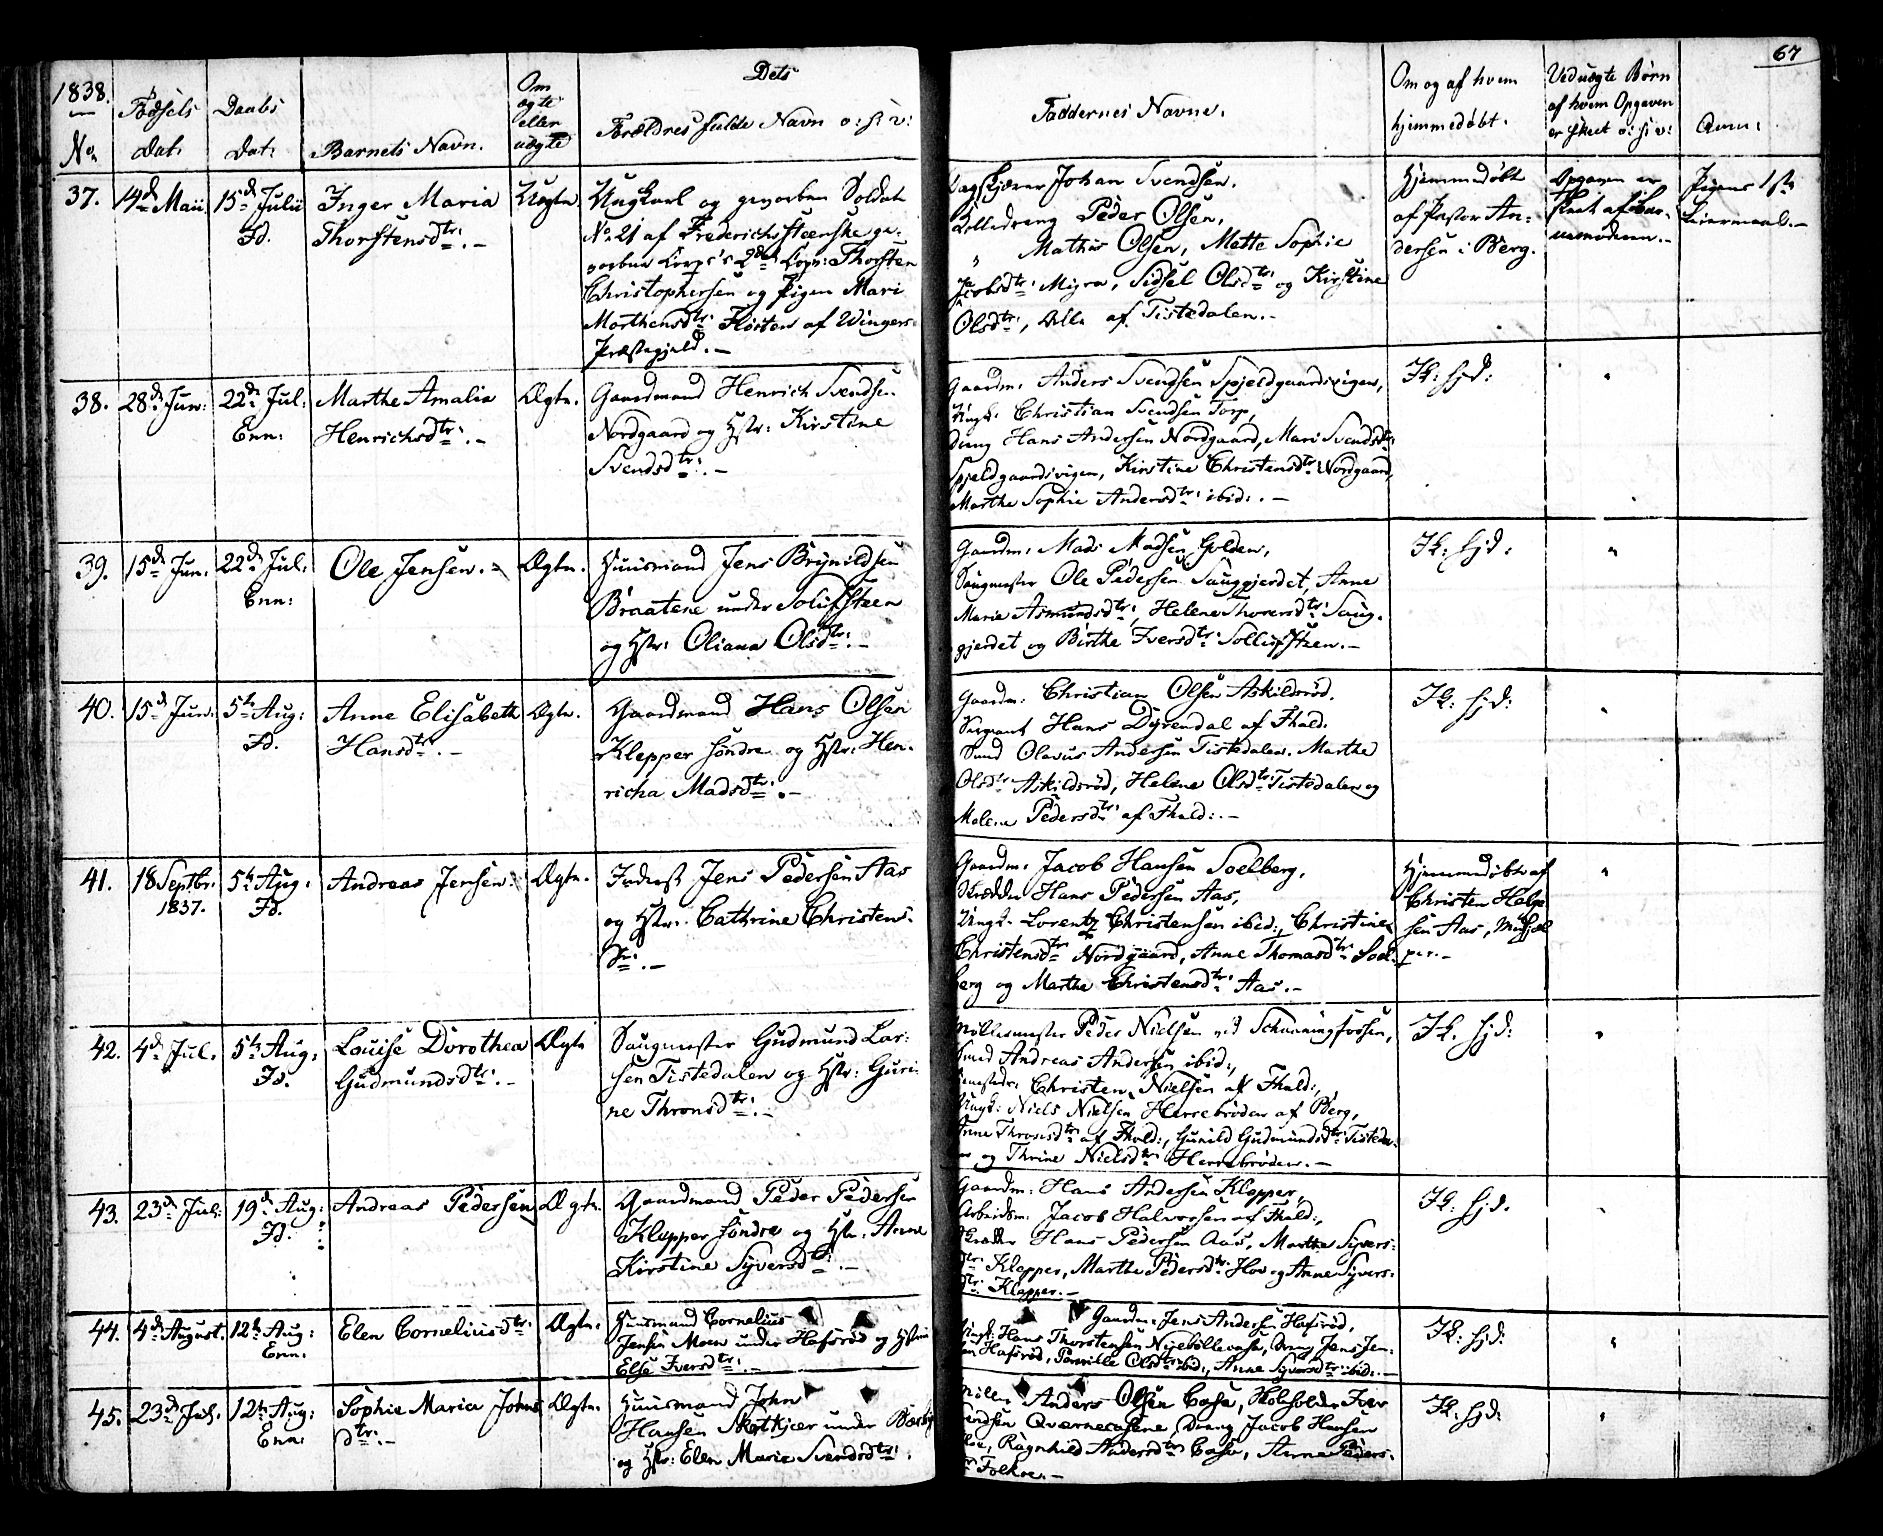 1838.
No.
Fødsels
Dat:
Daabs
Dat:
Barnets Navn.
Om
ægte
eller
uægte
Dets
Forældres fulde Navn o: s: v:
Faddernes Navne.
Om og af hvem
hjemmedøbt.
Ved uægte Børn
af hvem Opgaven
er skeet o: s: v:
Anm:
67
37.
14de Maii
15de Julii
Fd.
Inger Maria
Thorstensdtr: . –
Uægte.
Ungkarl og geworben Soldat
No 21 af Frederichssteenske ge-
worbne Corps's 2det Comp: Thorsten
Christophersen og Pigen Mari
Morthensdtr: Flosten af Wingers
Præstegjeld. –
Johan Svendsen.
Peder Olsen,
" Mathis Olsen, Mette Sophie
Jacobsdtr: Sidsel Olsdtr: og Kirstine
Olsdtr:, Alle af Tistedalen. –
Hjemmedøbt
af Pastor An-
dersen i Berg.
Opgaven er
skeet af Bar-
nemoderen. –
Pigens 1ste
Leiermaal. –
38.
28de Jun:
22de Jul:
Enn:
Marthe Amalia
Henrichsdtr: . –
Ægte.
Gaardmand Henrich Svendsen
Nordgaard og Hstr: Kirstine
Svendsdtr: . –
Gaardm: Anders Svendsen Spjeldgaardsvigen,
Ungk: Christian Svendsen Torp,
Dreng Hans Andersen Nordgaard, Mari Svendsdtr:
Spjeldgaardsvigen, Kirstine Christensdtr: Nordgaard,
Marthe Sophie Andersdtr: ibid: . –
Ik: hjd:
"
39.
15de Jun:
22de Jul:
Enn:
Ole Jensen. –
Ægte.
Huusmand Jens Brynildsen
Braatene under Solliefsteen
og Hstr: Oliana Olsdtr: . –
Gaardm: Mads Madsen Golden,
Saugmester Ole Pedersen Sauggjerdet, Anne
Marie Asmundsdtr:, Helene Thoresdtr: Saug-
gjerdet og Birthe Iversdtr: Solliefsteen. –
Ik: hjd:
"
40.
15de Jun:
5te Aug:
Fd.
Anne Elisabeth
Hansdtr: . –
Ægte.
Gaardmand Hans Olsen
Klepper søndre og Hstr: Hen-
richa Madsdtr: . –
Gaardm: Christian Olsen Askildsrød.
Sergeant Hans Dyrendal af Fhald.
Svend Olavus Andersen Tistedalen. Marthe
Olsdtr: Askildsrød, Helene Olsdtr: Tistedalen og
Malene Pedersdtr: af Fhald: . –
Ik: hjd:
"
41.
18 Septbr:
1837.
5te Aug:
Fd.
Andreas Jensen
Ægte.
Inderst Jens Pedersen Aas
og Hstr: Cathrine Christens-
dtr: . –
Gaardm: Jacob Hansen Soelberg,
Skrædder Hans Pedersen Aas,
Ungk: Lorentz Christensen ibid:, Christine
Christensdtr: Nordgaard, Anne Thomasdtr: Soel-
berg og Marthe Christensdtr: Aas. –
Hjemmedøbt af
Christen
sen Aas, Medhjel-
per. –
"
42.
4de Jul.
5te Aug:
Fd.
Louise Dorothea
Gudmundsdtr: . –
Ægte
Saugmester Gudmund Lar-
sen Tistedalen og Hstr: Guri-
ne Thronsdtr: . –
Møllemester Peder Nielsen ved Schonningfossen,
Svend Andreas Andersen ibid:,
Christen Nielsen af Fhald:,
Ungk: Niels Nielsen Herrebrøden af Berg,
Anne Thronsdtr: af Fhald:, Gunild Gudmundsdtr: Tisteda-
len og Thrine Nielsdtr: Herrebrøden. –
Ik. hjd:
"
43.
23de Jul:
19de Aug:
Fd.
Andreas Pedersen
Ægte.
Gaardmand Peder Pedersen
Klepper søndre og Hstr. Anne
Kirstine Syversdtr: . –
Gaardm: Hans Andersen Klepper,
Arbeidsm: Jacob Halvorsen af Fhald:,
Skrædder Hans Pedersen Aas, Marthe Syvers-
dtr: Klepper, Marthe Pedersdtr: Hov og Anne Syvers-
dtr: Klepper. –
Ik: hjd.
"
44.
4de August.
12te Aug:
Enn:
Elen Corneliusdtr:
Ægte.
Huusmand Cornelius
Jensen Moen under Hafsrød og Hstru
Else Iversdtr: . –
Gaardm: Jens Andersen Hafsrød,
Ungk: Hans Thorstensen Dreng Jens Jen-
sen Hafsrød, Pernille Olsdtr: ibid:, Anne Syversdtr: ibid: . –
Ik: hjd:
"
45.
23de Jul.
12te Aug:
Enn:
Sophie Maria Johns-
dtr: –
Ægte.
Huusmand John
Hansen under
og Hstr: Elen Maria Svendsdtr: .
Anders Olsen Case, Iver
Svendsen Qværnecasene, Dreng Jacob Hansen
Ragnhild Andersdtr: Case, Anne Peders-
dtr: Folkøe. –
Ik: hjd:
"